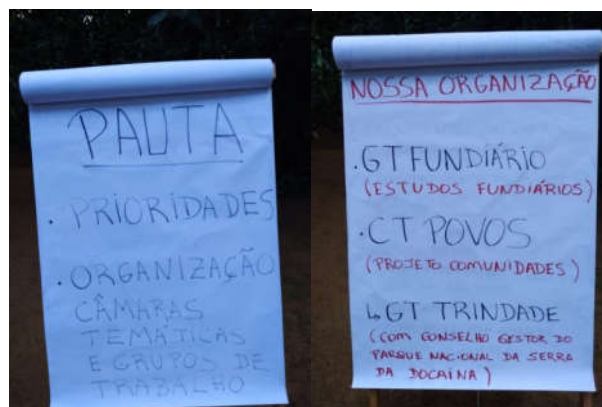 PAUTA
. PRIORIDADES
. ORGANIZAÇÃO
CÂMARAS
TEMÁTICAS
E GRUPOS DE
TRABALHO
NOSSA ORGANIZAÇÃO
. GT FUNDIÁRIO
(ESTUDOS FUNDIÁRIOS)
. CT POVOS
(PROJETO COMUNIDADES)
↳ GT TRINDADE
(COM CONSELHO GESTOR DO
PARQUE NACIONAL DA SERRA
DA BOCAINA)